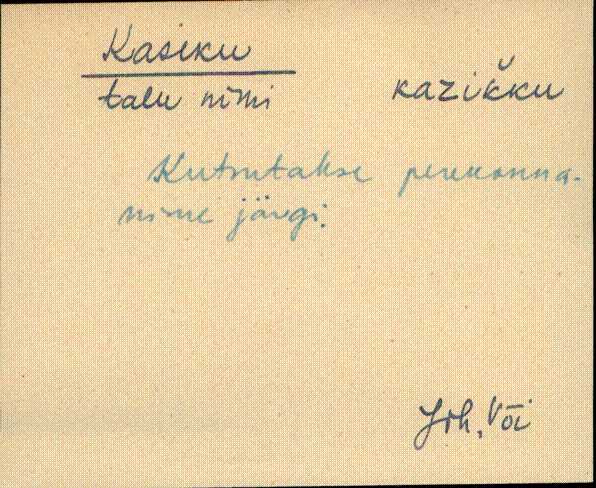 Kasiku
talu nimi kazik̆ku
Kutsutakse perekonna-
nime järgi.
Jõh, Või